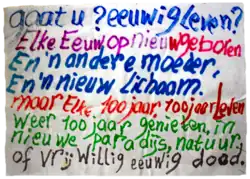 gaat u ? eeuwig leven?
Elke Eeuw op nieuw geboren
En 'n andere moeder,
En 'n nieuw Lichaam.
maar Elke 100 jaar 100 jaar Leven
weer 100 jaar genieten, in
nieuwe paradijs, natuur,
of vrij willig eeuwig dood.